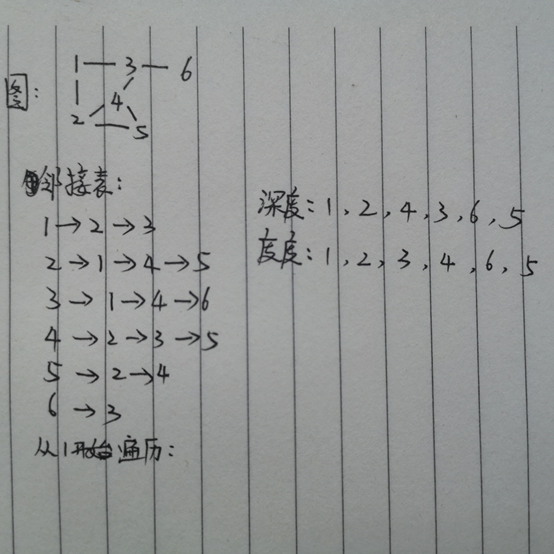 图:
1 — 3 — 6
4
2 — 5
邻接表:
1→2→3
2→1→4→5
3→1→4→6
4→2→3→5
5→2→4
6→3
从1开始遍历:
深度:1,2,4,3,6,5
度度:1,2,3,4,6,5